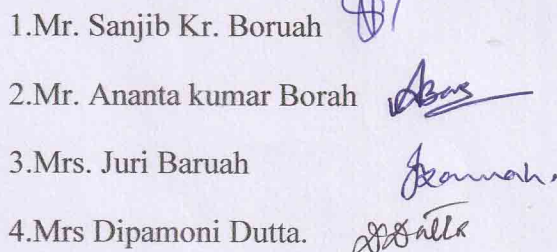 1.Mr. Sanjib Kr. Boruah
2.Mr. Ananta kumar Borah
3.Mrs. Juri Baruah
4.Mrs Dipamoni Dutta.